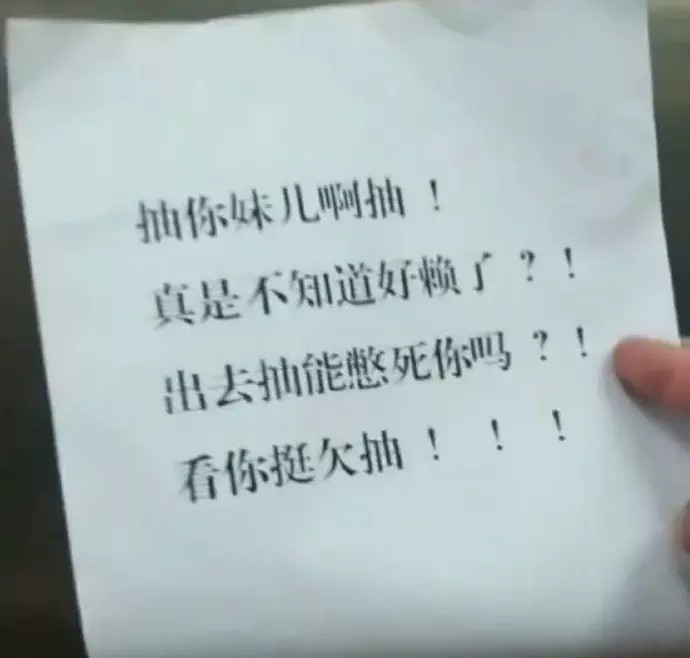 抽你妹儿啊抽！
真是不知道好赖了？！
出去抽能憋死你吗？！
看你挺欠抽！！！